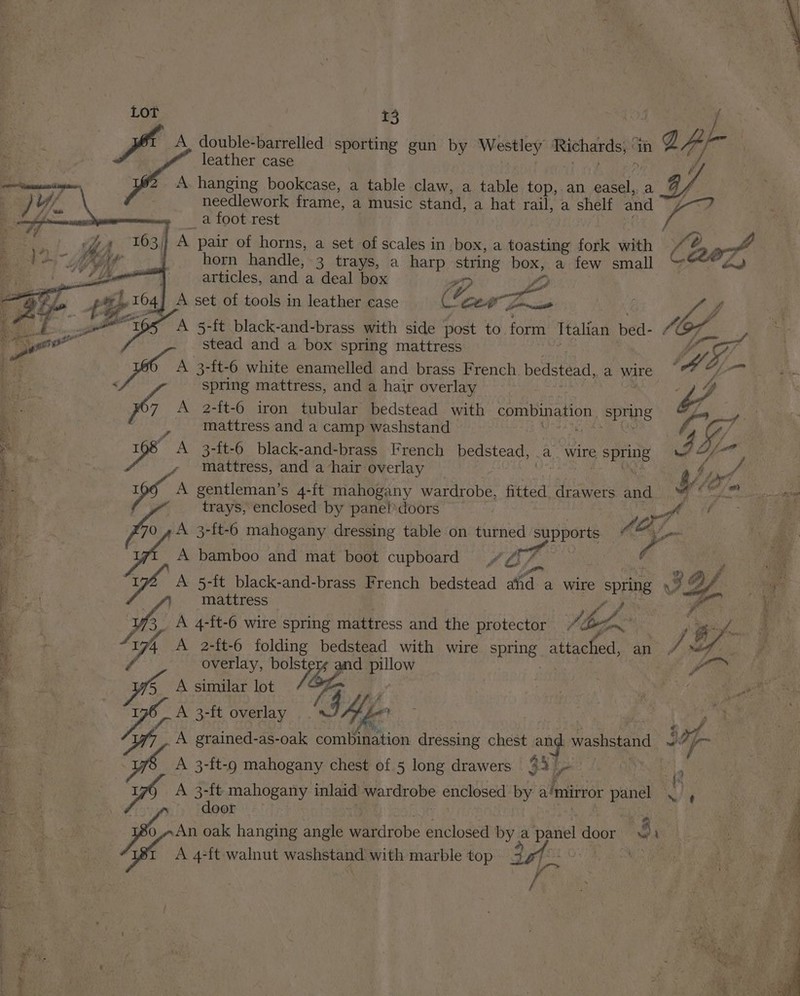 LOT 13
161 A double-barrelled sporting gun by Westley Richards, in
leather case
162 A hanging bookcase, a table claw, a table top, an easel, a
needlework frame, a music stand, a hat rail, a shelf and
a foot rest
163 A pair of horns, a set of scales in box, a toasting fork with
horn handle, 3 trays, a harp string box, a few small
articles, and a deal box
164 A set of tools in leather case
165 A 5-ft black-and-brass with side post to form Italian bed-
stead and a box spring mattress
166 A 3-ft-6 white enamelled and brass French bedstead, a wire
spring mattress, and a hair overlay
167 A 2-ft-6 iron tubular bedstead with combination spring
mattress and a camp washstand
168 A 3-ft-6 black-and-brass French bedstead, a wire spring
mattress, and a hair overlay
169 A gentleman's 4-ft mahogany wardrobe, fitted drawers and
trays, enclosed by panel doors
170 A 3-ft-6 mahogany dressing table on turned supports
171 A bamboo and mat boot cupboard
172 A 5-ft black-and-brass French bedstead and a wire spring
mattress
173 A 4-ft-6 wire spring mattress and the protector
174 A 2-ft-6 folding bedstead with wire spring attached, an
overlay, bolsters and pillow
175 A similar lot
176 A 3-ft overlay
177 A grained-as-oak combination dressing chest and washstand
178 A 3-ft-9 mahogany chest of 5 long drawers
179 A 3-ft mahogany inlaid wardrobe enclosed by a mirror panel
door
180 An oak hanging angle wardrobe enclosed by a panel door
181 A 4-ft walnut washstand with marble top